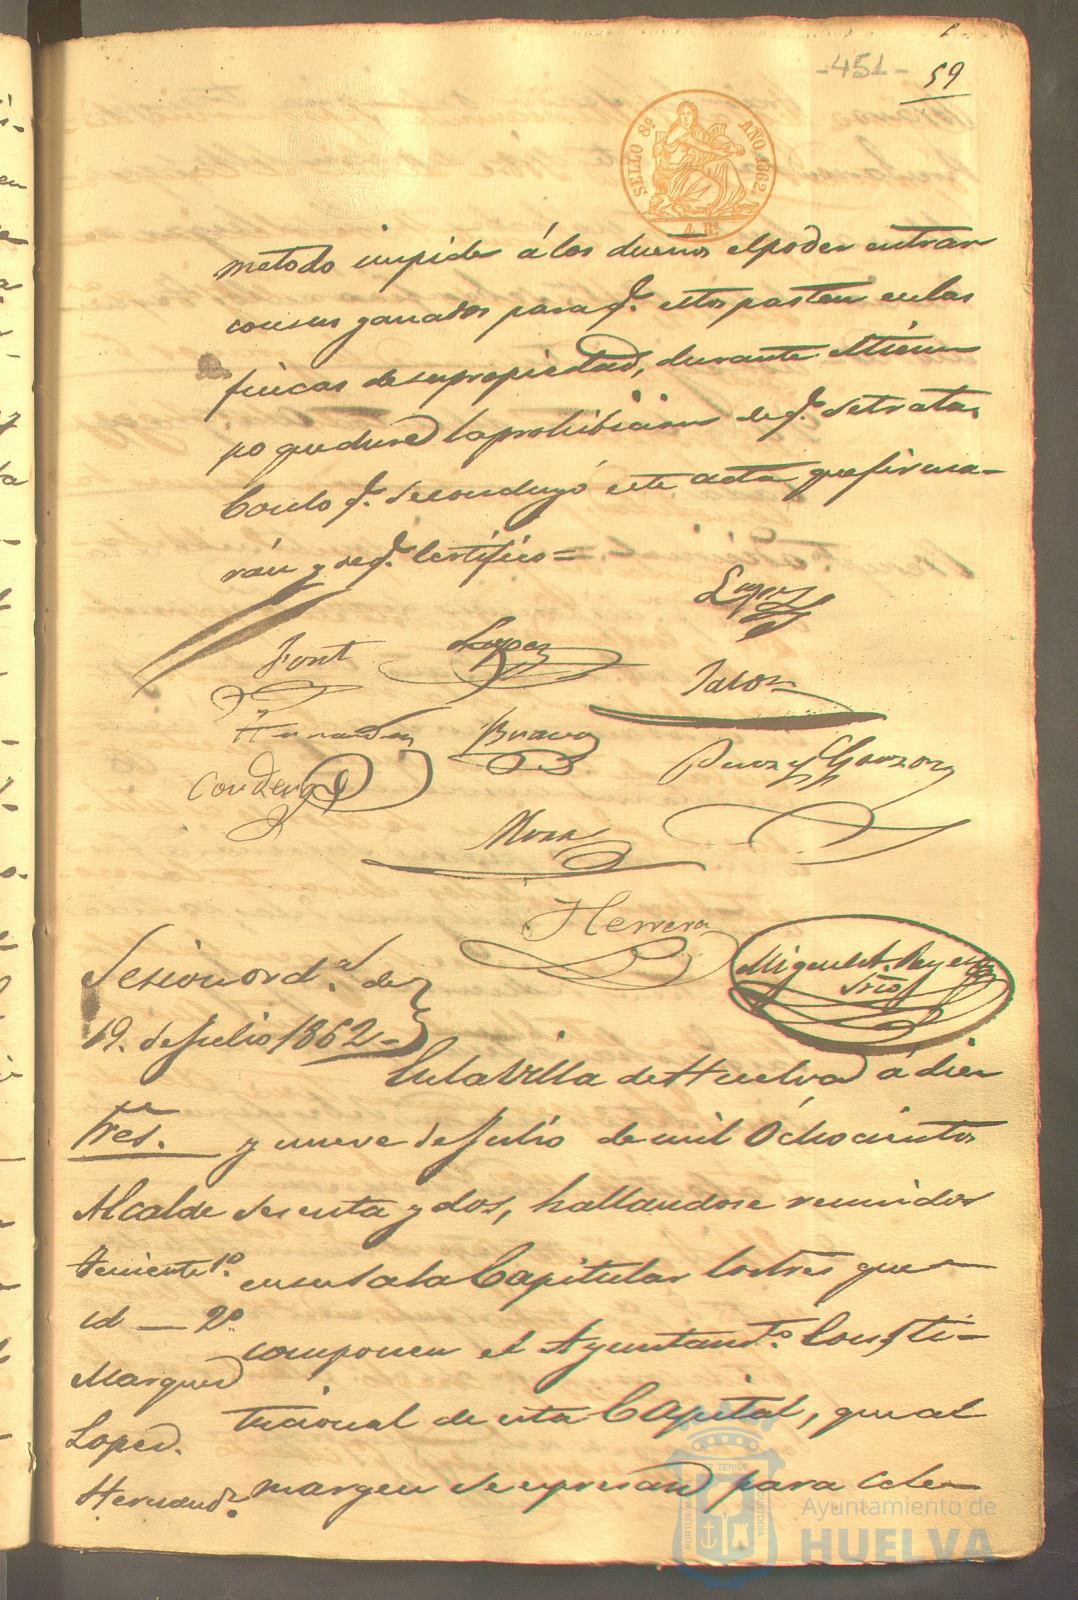 -451-
59
SELLO 8º AÑO 1862.
4 Rs
metodo impide á los dueños el poder entrar
con sus ganados para q.e estos pasten en las
fincas de su propiedad, durante el tiem
po que dure la prohibicion de q.e se trata.
Con lo q.e se concluyó este acta que firma-
rán y de q.e Certifico =
Lopez
Font
Lopez
Jalon
Hernandez
Bravo
Perez y Garzon
Mora
Herrera
Miguel A. Reyes
Srio
Sesion ord.al de
19. de Julio 1862-
En la Villa de Huelva á diez
Sres.
y nueve de Julio de mil Ochocientos
Alcalde
sesenta y dos, hallandose reunidos
Teniente 1º.
en su Sala Capitular los Sres que
id — 2º.
componen el Ayuntam.to Consti-
Marquez
tucional de esta Capital, que al
Lopez.
Hernand.z
margen se expresan para cele-
PORTUS MARIS ET TERRAE CUSTODIA
Ayuntamiento de
HUELVA